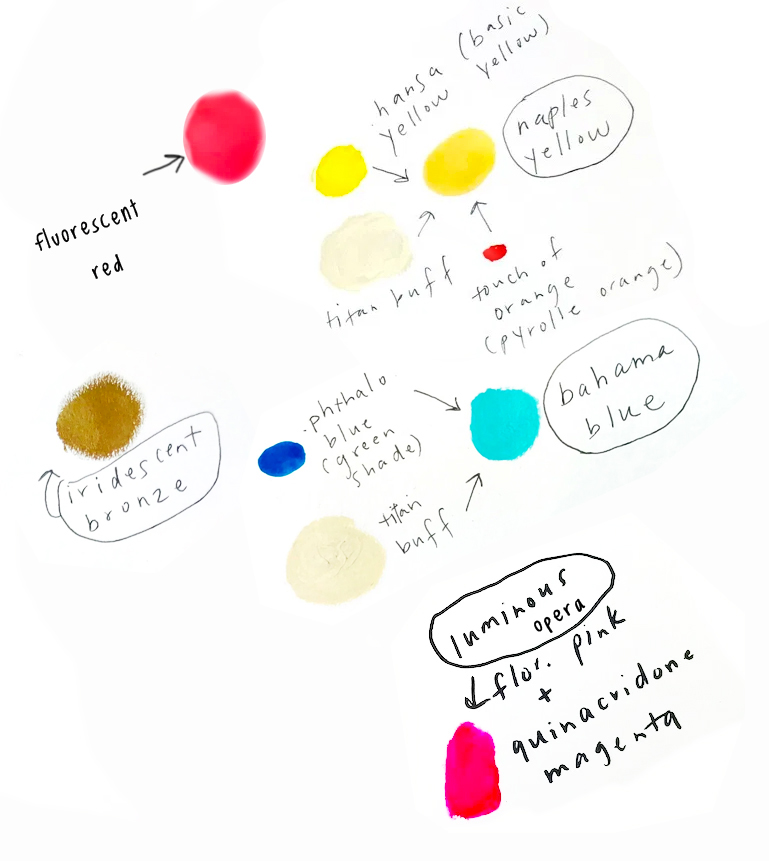 fluorescent
red
hansa (basic
yellow yellow)
naples
yellow
titan buff
touch of
orange
(pyrolle orange)
iridescent
bronze
phthalo
blue
(green
shade)
titan
buff
bahama
blue
luminous
opera
flor. pink
+
quinacridone
magenta